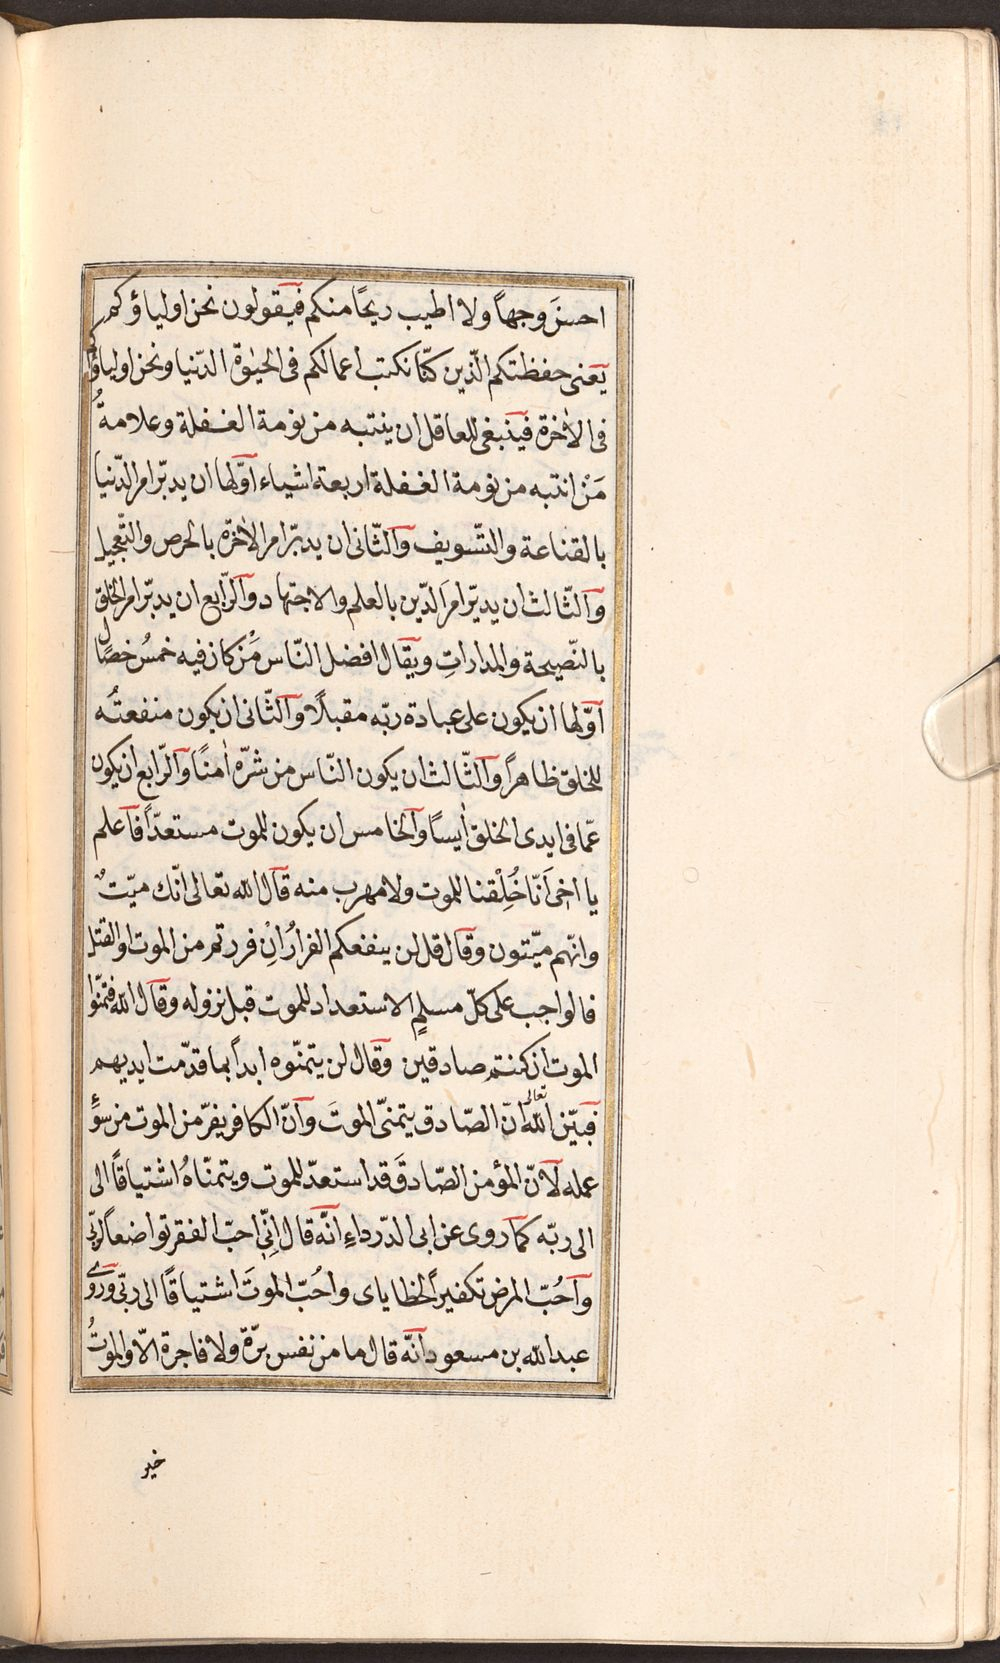 احسنَ وجهاً ولا اطيب ريحًا منكم فيقولون نحن اولياؤكم
يعنى حفظتكم الّذين كنّا نكتب اعمالكم فى الحيٰوة الدّنيا ونحن اولياؤكم
فى الاٰخرة فينبغى للعاقل ان ينتبه من نومة الغفلة وعلامةُ
مَنْ انتبه من نومة الغفلة اربعة اشياء اوّلها ان يدبّر امر الدّنيا
بالقناعة والتّسويف والثّانى ان يدبّر امر الاٰخرة بالحرص والتّعجيل
والثّالث ان يدبّر امرَ الدّين بالعلم والاجتهاد والرّابع ان يدبّر امر الخلق
بالنّصيحة والمداراتِ ويقال افضل النّاس مَنْ كان فيه خمسُ خصال
اوّلها ان يكون على عبادة ربّه مقبلًا والثّانى ان يكون منفعتُه
للخلق ظاهرًا والثّالث ان يكون النّاس من شرّه اٰمنًا والرّابع ان يكون
عمّا فى ايدى الخلق اٰيسًا والخامس ان يكون للموت مستعدّاً فاعلم
يا اخى اَنّا خُلِقْنا للموت ولا مهرب منه قال الله تعالى انّك ميّتٌ
وانّهم ميّتون وقال قل لن ينفعكم الفرارُ انْ فررتم من الموت او القتل
فالواجب على كلّ مسلمٍ الاستعداد للموت قبل نزوله وقال الله فتمنّوا
الموت ان كنتم صادقين وقال لن يتمنّوه ابداً بما قدّمت ايديهم
فبيّن الله تعالى انّ الصّادق يتمنّى الموتَ وانّ الكافر يفرّ من الموت من سوٓءِ
عمله لانّ المؤمن الصّادقَ قد استعدّ للموت ويتمنّاهُ اشتياقًا الى
الى ربّه كما روى عن ابى الدّرداءِ انّه قال اِنّى احبّ الفقر تواضعاً لربّى
واُحُبّ المرض تكفيرًا لخطاياى واُحُبّ الموتَ اشتياقًا الى ربّى وروى
عبد الله بن مسعود انّه قال ما من نفس برّة ولا فاجرة الّا والموتُ
خير